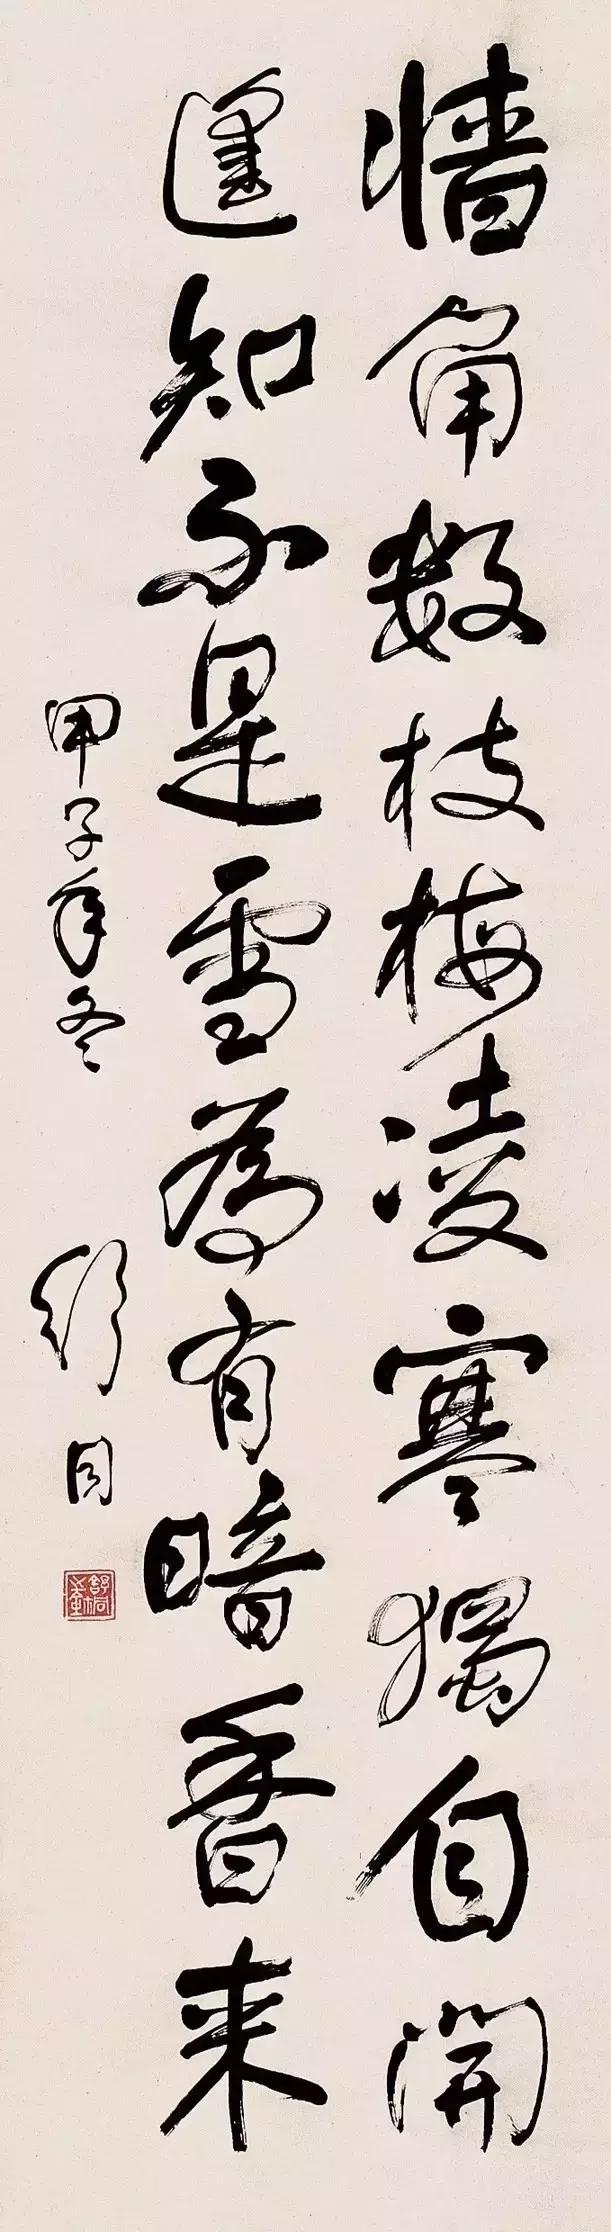 墙角数枝梅凌寒獨自開
遥知不是雪為有暗香来
甲子年冬 舒同
舒同